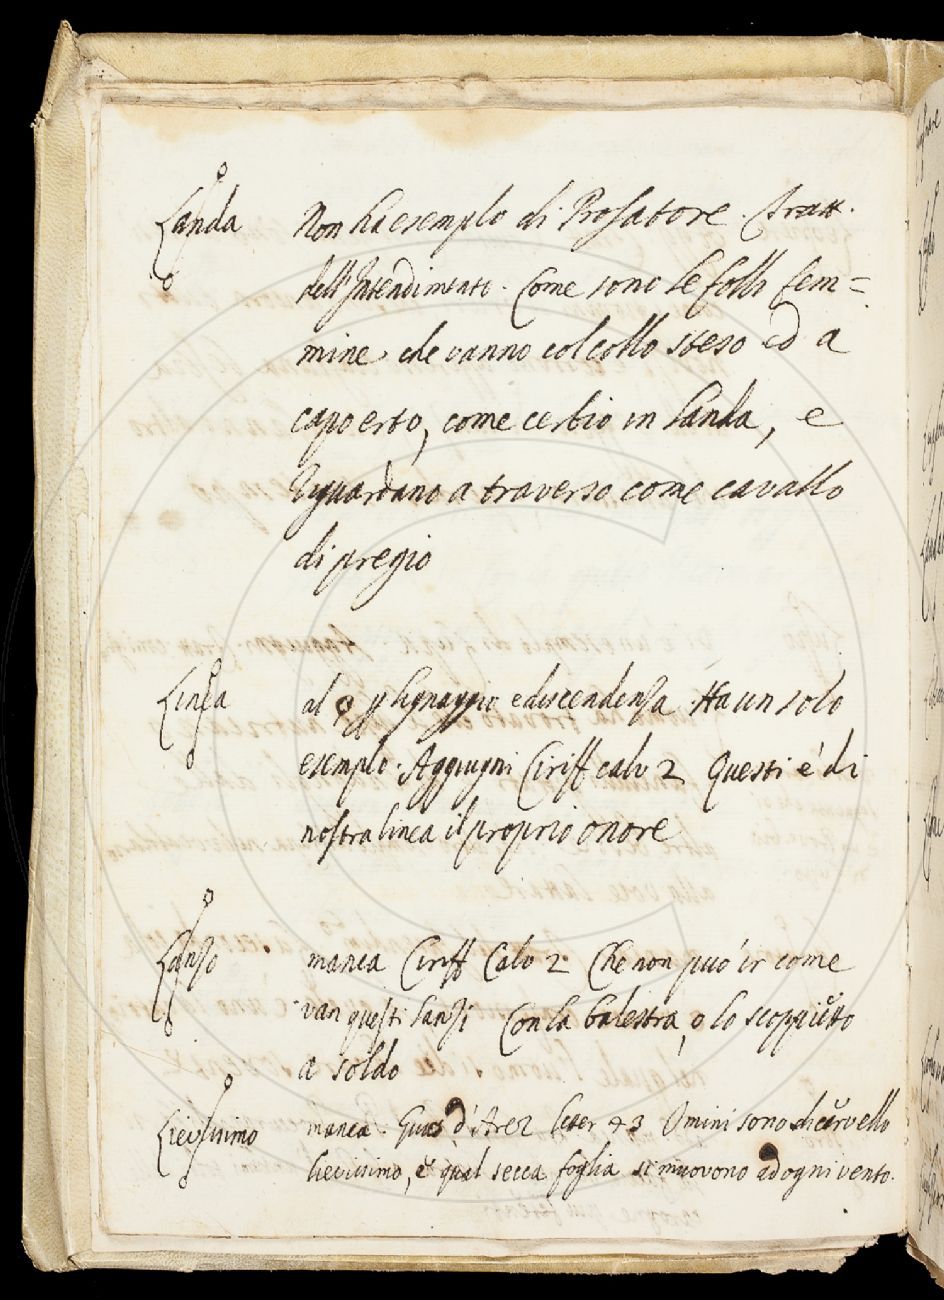 Landa Non ha esemplo di Prosatore. Tratt.
dell'Intendimento. Come sono le folli fem=
mine che vanno col collo steso ed a
capo erto, come cerbio in landa, e
sguardano a traverso come cavallo
di pregio
Linea al § p lignaggio e discendenza. Ha un solo
esemplo. Aggiugni Ciriff calv 2 Questi è di
nostra linea il proprio onore
Lanzo manca Ciriff Calv 2. Che non può ir come
van questi lanzi Con la balestra, o lo scoppietto
a soldo
Lievissimo manca. Guit d'Arez leter 43 Omini sono di cervello
lievissimo, e qual secca foglia si muovono ad ogni vento.